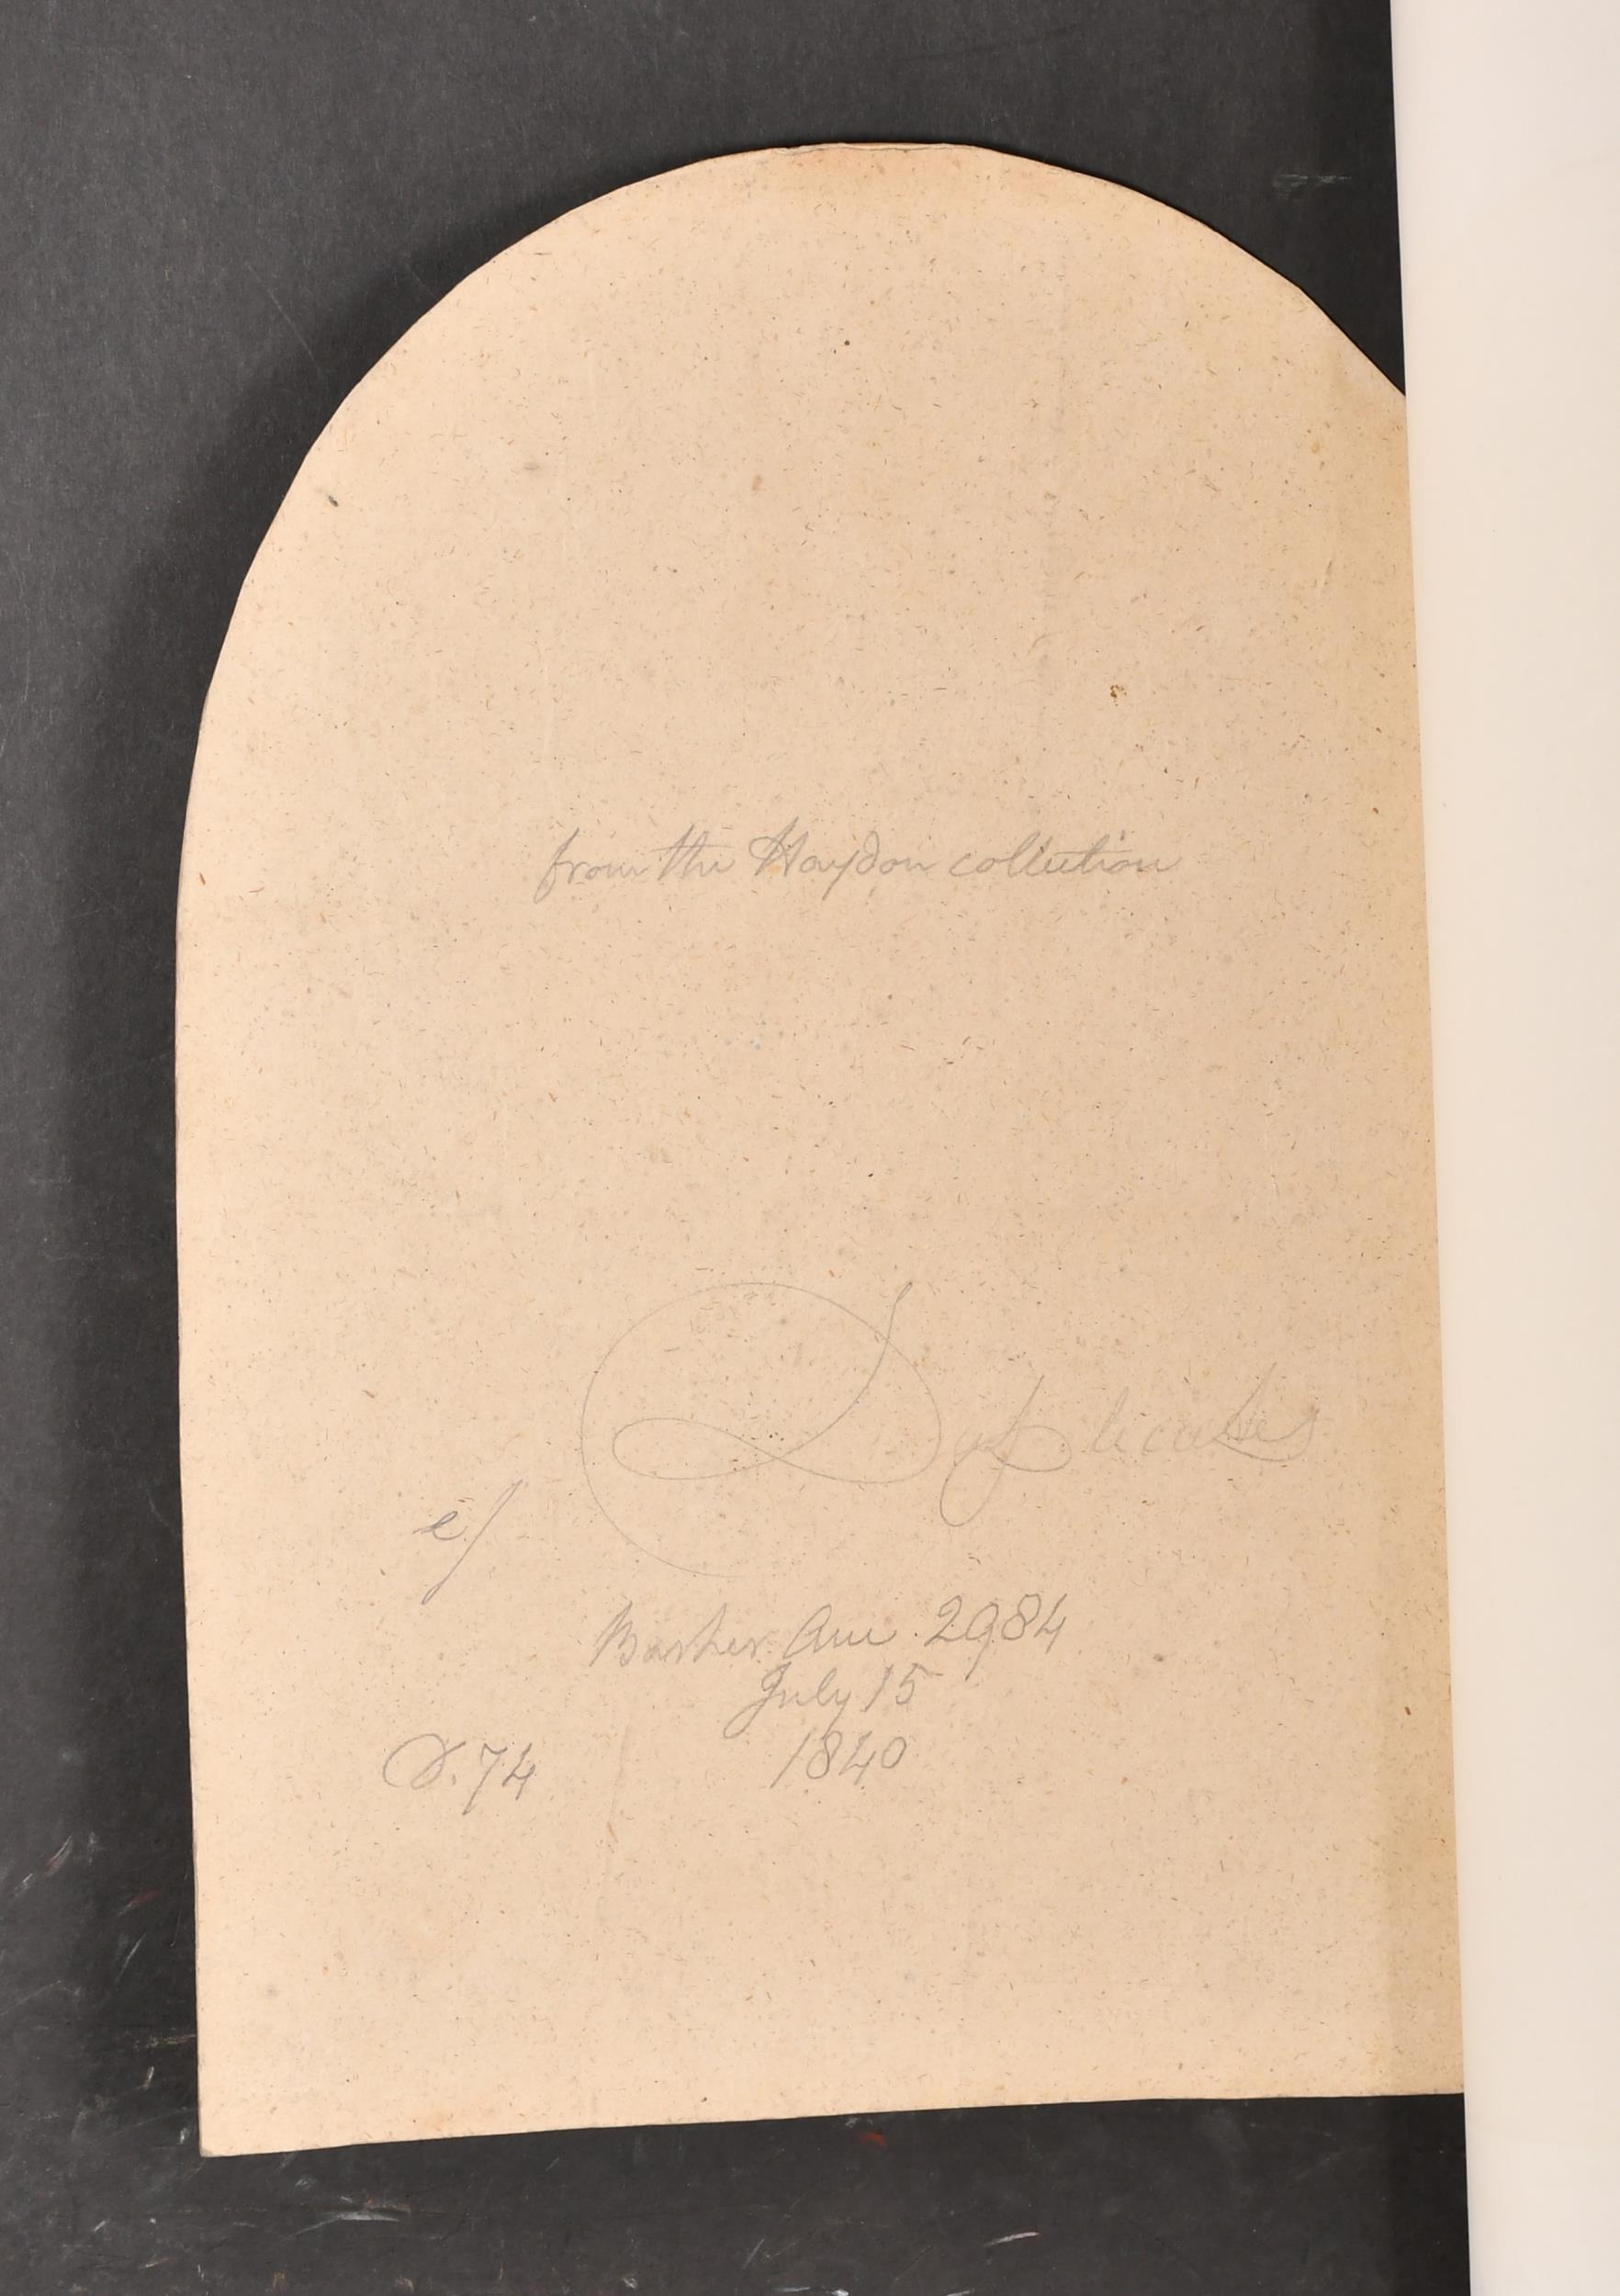 from the Haydon collection
Duplicates
e/
Barker Ave. 2984
July 15
1840
D.74